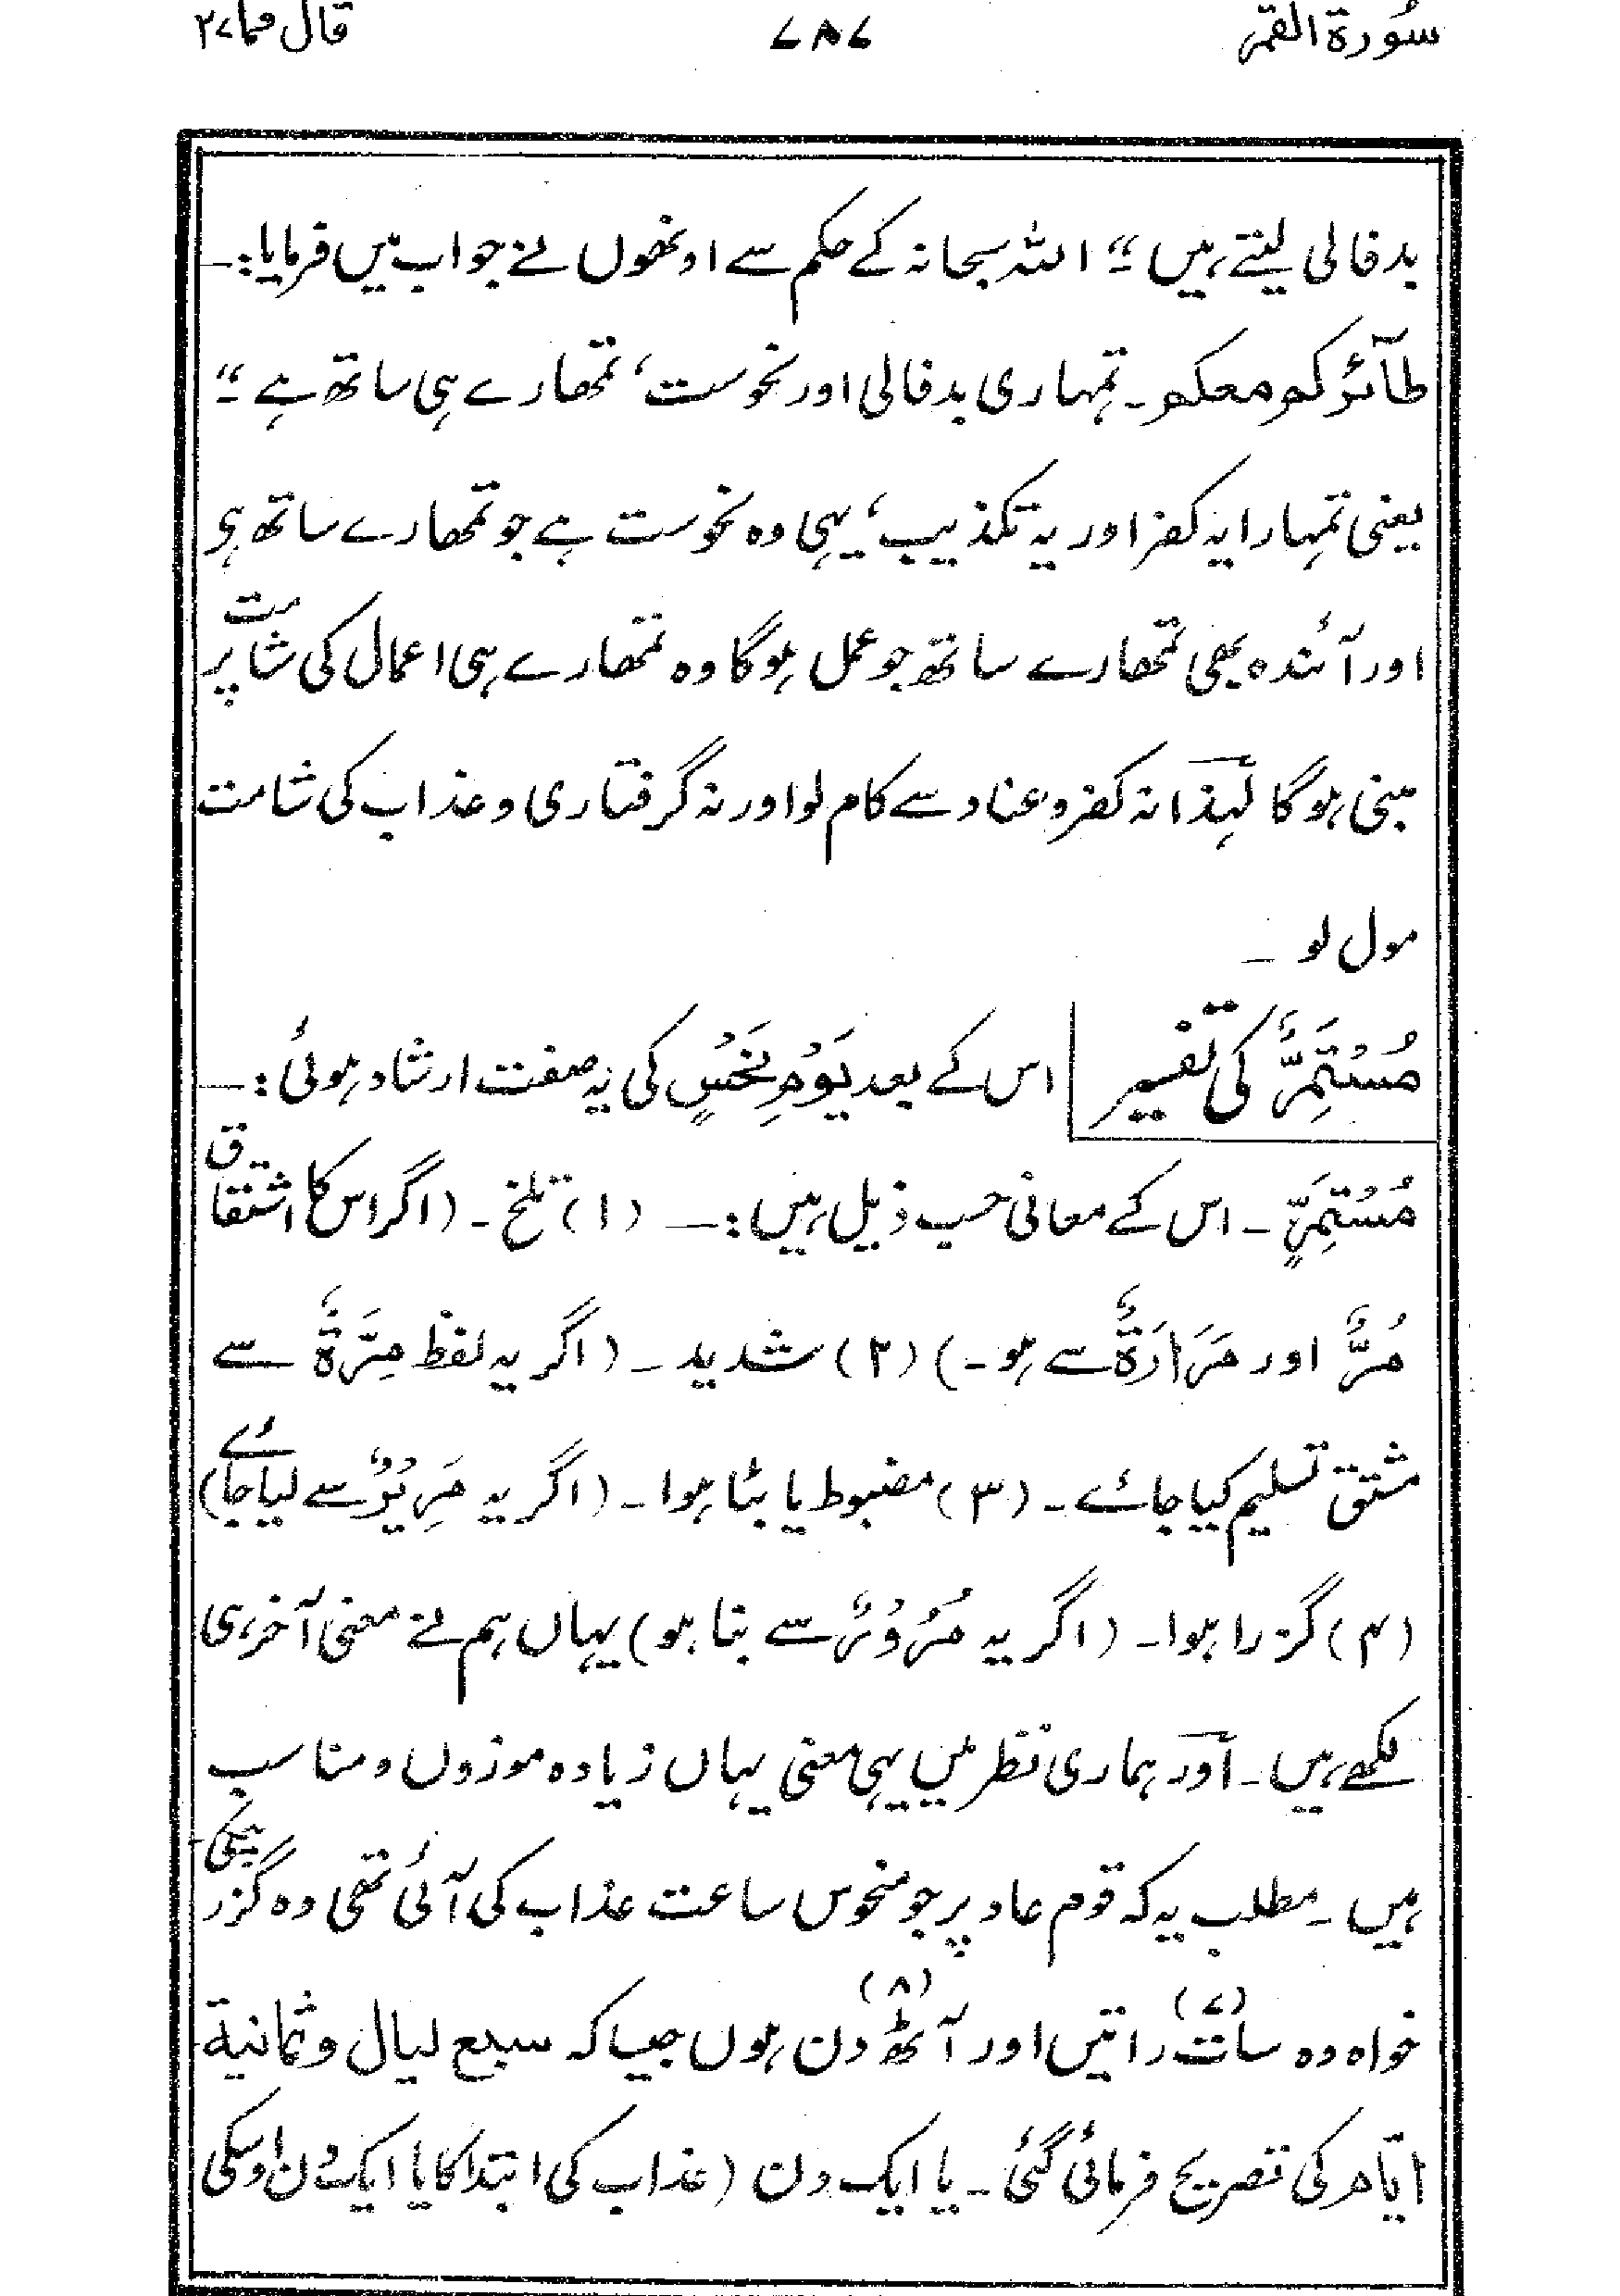 سُورۃ القمر ۷۸۷ قال فما ۲۷
بدفالی لیتے ہیں ‘‘۔ اللہ سبحانہ کے حکم سے اونھوں نے جواب میں فرمایا:۔
طآئرکم معکم۔ تمہاری بدفالی اور نحوست، تمھارے ہی ساتھ ہے ‘‘۔
یعنی تمہارا یہ کفر اور یہ تکذیب، یہی وہ نحوست ہے جو تمھارے ساتھ ہی
اور آئندہ بھی تمھارے ساتھ جو عمل ہوگا وہ تمھارے ہی اعمال کی شامت پر
مبنی ہوگا لہٰذا نہ کفر و عناد سے کام لو اور نہ گرفتاری و عذاب کی شامت
مول لو ۔
مُسْتَمِرٌّ کی تفسیر اس کے بعد یَوْمِ نَحْسٍ کی یہ صفت ارشاد ہوئی:۔
مُسْتَمِرٍّ ۔ اس کے معانی حسب ذیل ہیں:۔ (۱) تلخ ۔ (اگر اس کا اشتقاق
مُرٌّ اور مَرَارَۃٌ سے ہو۔) (۲) شدید ۔ (اگر یہ لفظ مِرَّۃٌ سے
مشتق تسلیم کیا جائے ۔ (۳) مضبوط یا بٹا ہوا ۔ (اگر یہ مَرِیْرٌ سے لیا جائے)
(۴) گزرا ہوا۔ (اگر یہ مُرُوْرٌ سے بنا ہو) یہاں ہم نے معنی آخر ہی
لکھے ہیں ۔ اور ہماری نظر میں یہی معنی یہاں زیادہ موزوں و مناسب
ہیں ۔ مطلب یہ کہ قوم عاد پر جو منحوس ساعت عذاب کی آئی تھی وہ گزر چکی
خواہ وہ سات (۷) راتیں اور آٹھ (۸) دن ہوں جیسا کہ سبع لیال وثمانیۃ
ایّام کی تصریح فرمائی گئی ۔ یا ایک دن (عذاب کی ابتدا کا یا ایک دن اوسکی